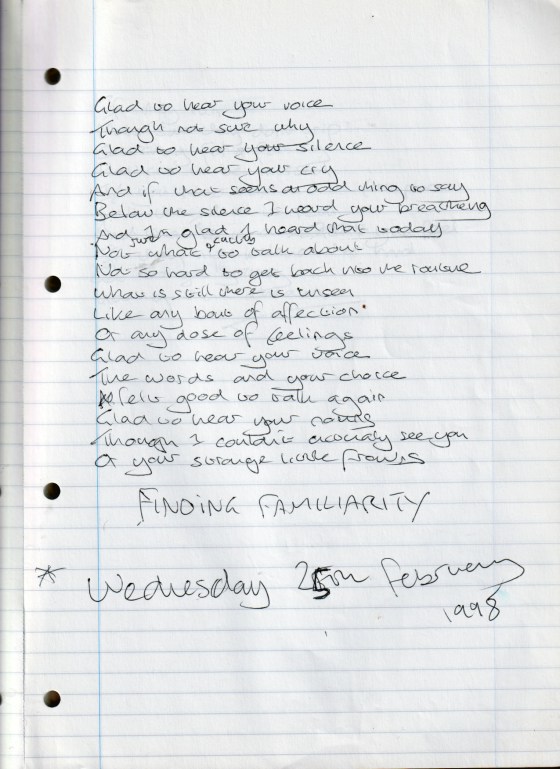 Glad to hear your voice
Though not sure why
Glad to hear your silence
Glad to hear your cry
And if that seems an odd thing to say
Below the silence I heard your breathing
And I'm glad I heard that today
Not what to talk about
Not so hard to get back into the routine
What is still there is unseen
Like any bout of affection
Or any dose of feelings
Glad to hear your voice
The words and your choice
felt good to talk again
Glad to hear your
Though I couldn't actually see you
Or your strange little frowns
FINDING FAMILIARITY
* Wednesday 25th February
1998